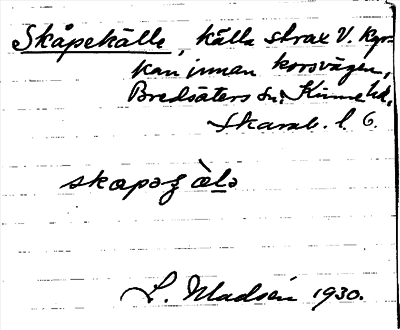 Skåpekälle, källa strax V. kyr-
kan innan korsvägen,
Bredsäters sn; Kinne hd,
Skarab. l. G.
skapəʒ ὰlə
L. Madsén 1930.